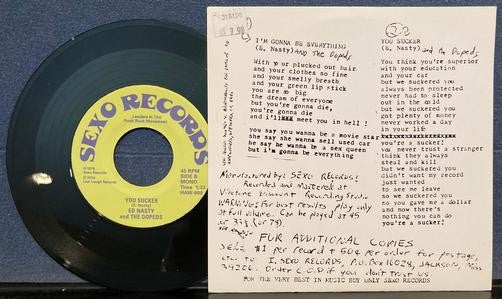 SEXO RECORDS
Leaders in The
Punk Rock Movement
45 RPM
SIDE B
MONO
Time 1:23
HAW-009
YOU SUCKER
(E. Nasty)
ED NASTY
and the DOPEDS
I'M GONNA BE EVERYTHING
(E, Nasty) AND The Dopeds
With your plucked out hair
and your clothes so fine
and your smelly breath
and your green lip stick
you are so big
the dream of everyone
but you're gonna die,
you're gonna die
and i'll meet you in hell !
you say you wanna be a movie star
she say she wanna sell used car
he say he wanna be a sex queen
but i'm gonna be everything
YOU SUCKER
(E. Nasty) and the Dopeds
You think you're superior
with your education
and your car
but we suckered you
always been protected
never had to sleep
out in the cold
but we suckered you
got plenty of money
never worked a day
in your life
you're a sucker!
you never trust a stranger
think they always
steal and kill
but we suckered you
didn't want my record
just wanted
to see me leave
so we suckered you
so you gave me a dollar
and now there's
nothing you can do
you're a sucker!
Manufactured by: SEXO RECORDS!
Recorded and Mastered at
Recording Studio
WARNING: For best results play only
at full volume. Can be played at 45
or 33 1/3 (or 78).
FOR ADDITIONAL COPIES
Send $1 per record + 50¢ per order for postage,
etc. to: I. SEXO RECORDS, P.O. Box 16028, JACKSON, Miss
39206. Order C.O.D if you don't trust us.
FOR THE VERY BEST IN MUSIC BUY ONLY SEXO RECORDS